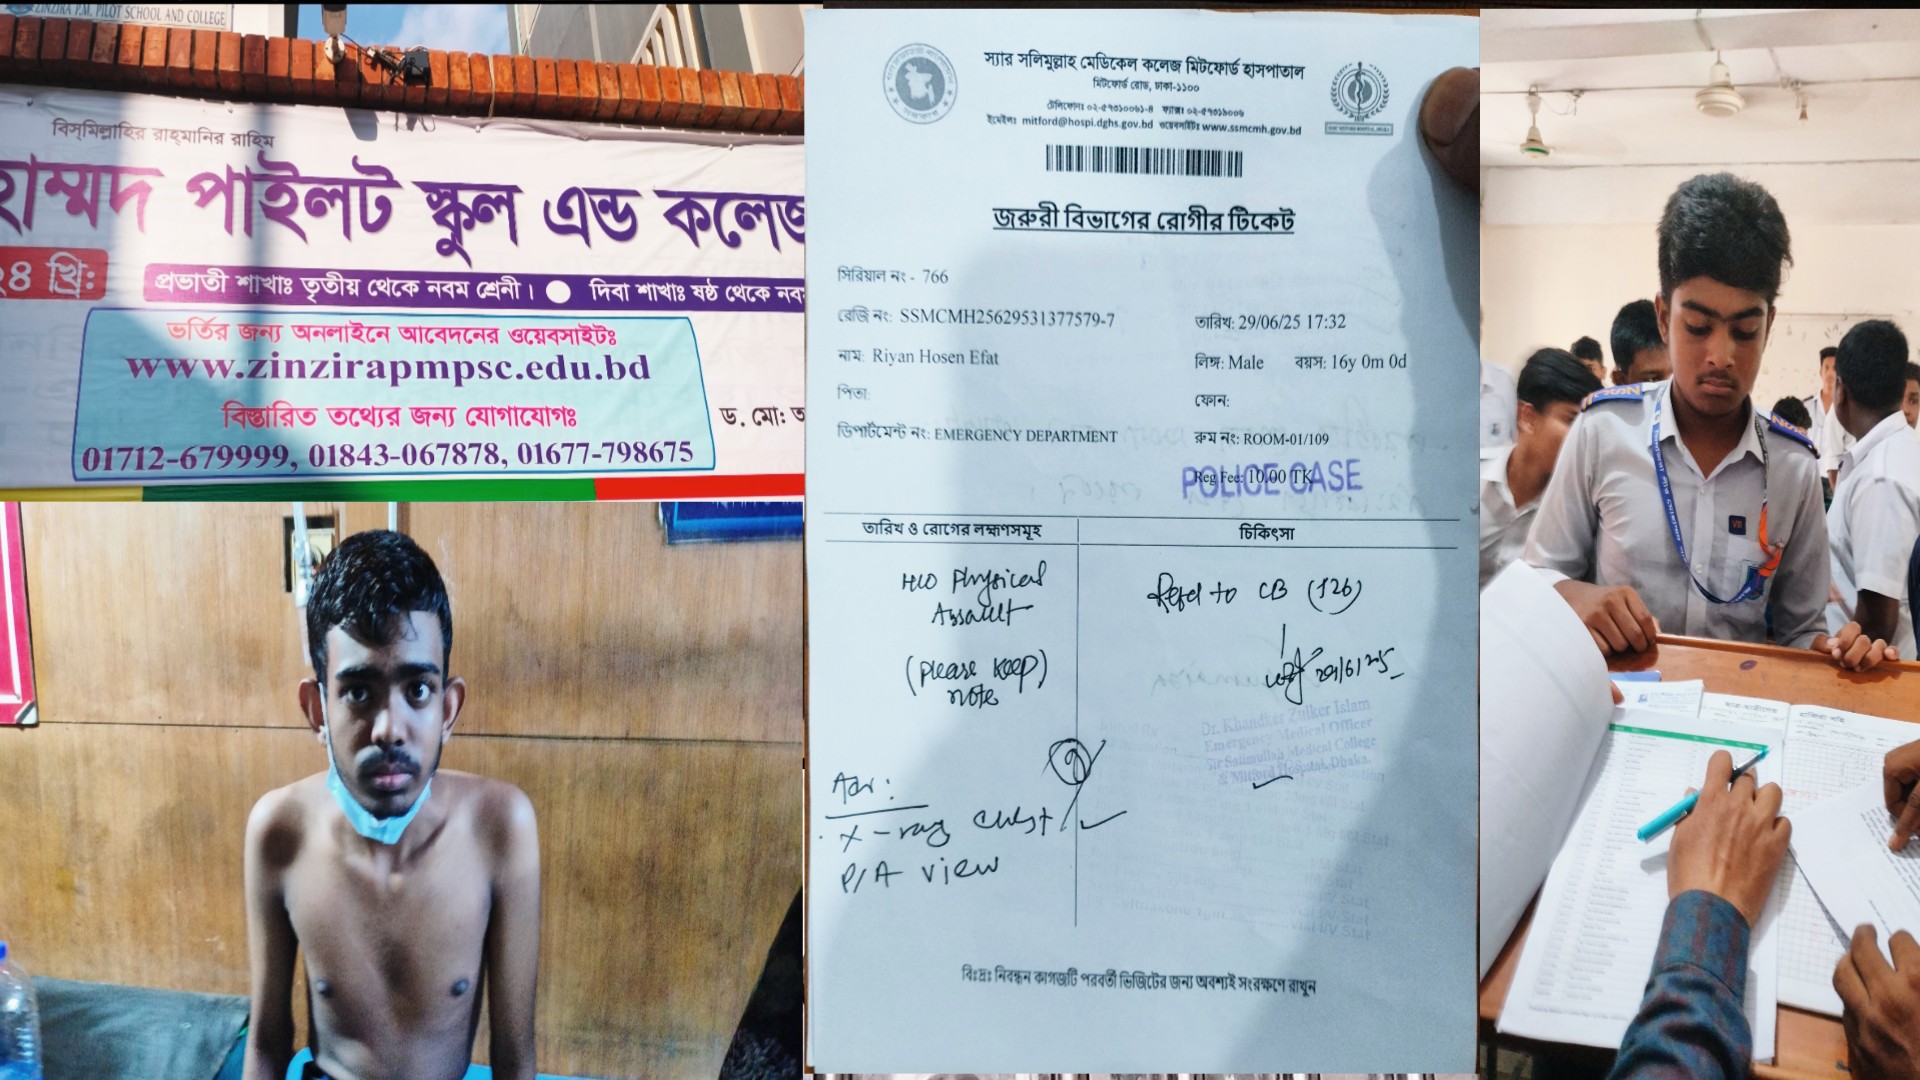 ZINZIRA P.M. PILOT SCHOOL AND COLLEGE
বিস্‌মিল্লাহির রাহ্‌মানির রাহিম
হাম্মদ পাইলট স্কুল এন্ড কলেজ
২৪ খ্রি:
প্রভাতী শাখাঃ তৃতীয় থেকে নবম শ্রেনী। ● দিবা শাখাঃ ষষ্ঠ থেকে নব
ভর্তির জন্য অনলাইনে আবেদনের ওয়েবসাইটঃ
www.zinzirapmpsc.edu.bd
বিস্তারিত তথ্যের জন্য যোগাযোগঃ
ড. মো:
01712-679999, 01843-067878, 01677-798675
স্যার সলিমুল্লাহ মেডিকেল কলেজ মিটফোর্ড হাসপাতাল
মিটফোর্ড রোড, ঢাকা-১১০০
টেলিফোনঃ ০২-৫৭৩১০০৬১-৪ ফ্যাক্সঃ ০২-৫৭৩১৯০০৬
ইমেইলঃ mitford@hospi.dghs.gov.bd ওয়েবসাইটঃ www.ssmcmh.gov.bd
জরুরী বিভাগের রোগীর টিকেট
সিরিয়াল নং - 766
রেজি নং: SSMCMH25629531377579-7
তারিখ: 29/06/25 17:32
নাম: Riyan Hosen Efat
লিঙ্গ: Male বয়স: 16y 0m 0d
পিতা:
ফোন:
ডিপার্টমেন্ট নং: EMERGENCY DEPARTMENT
রুম নং: ROOM-01/109
Reg Fee: 10.00 TK
POLICE CASE
তারিখ ও রোগের লক্ষণসমূহ
চিকিৎসা
H/O Physical
Assault
(please keep)
note
Refd to CB (126)
29/6/25
Dr. Khandker Zulker Islam
Emergency Medical Officer
Sir Salimullah Medical College
& Mitford Hospital, Dhaka.
Adv:
X-ray chest
P/A view
বিঃদ্রঃ নিবন্ধন কাগজটি পরবর্তী ভিজিটের জন্য অবশ্যই সংরক্ষণে রাখুন
VII